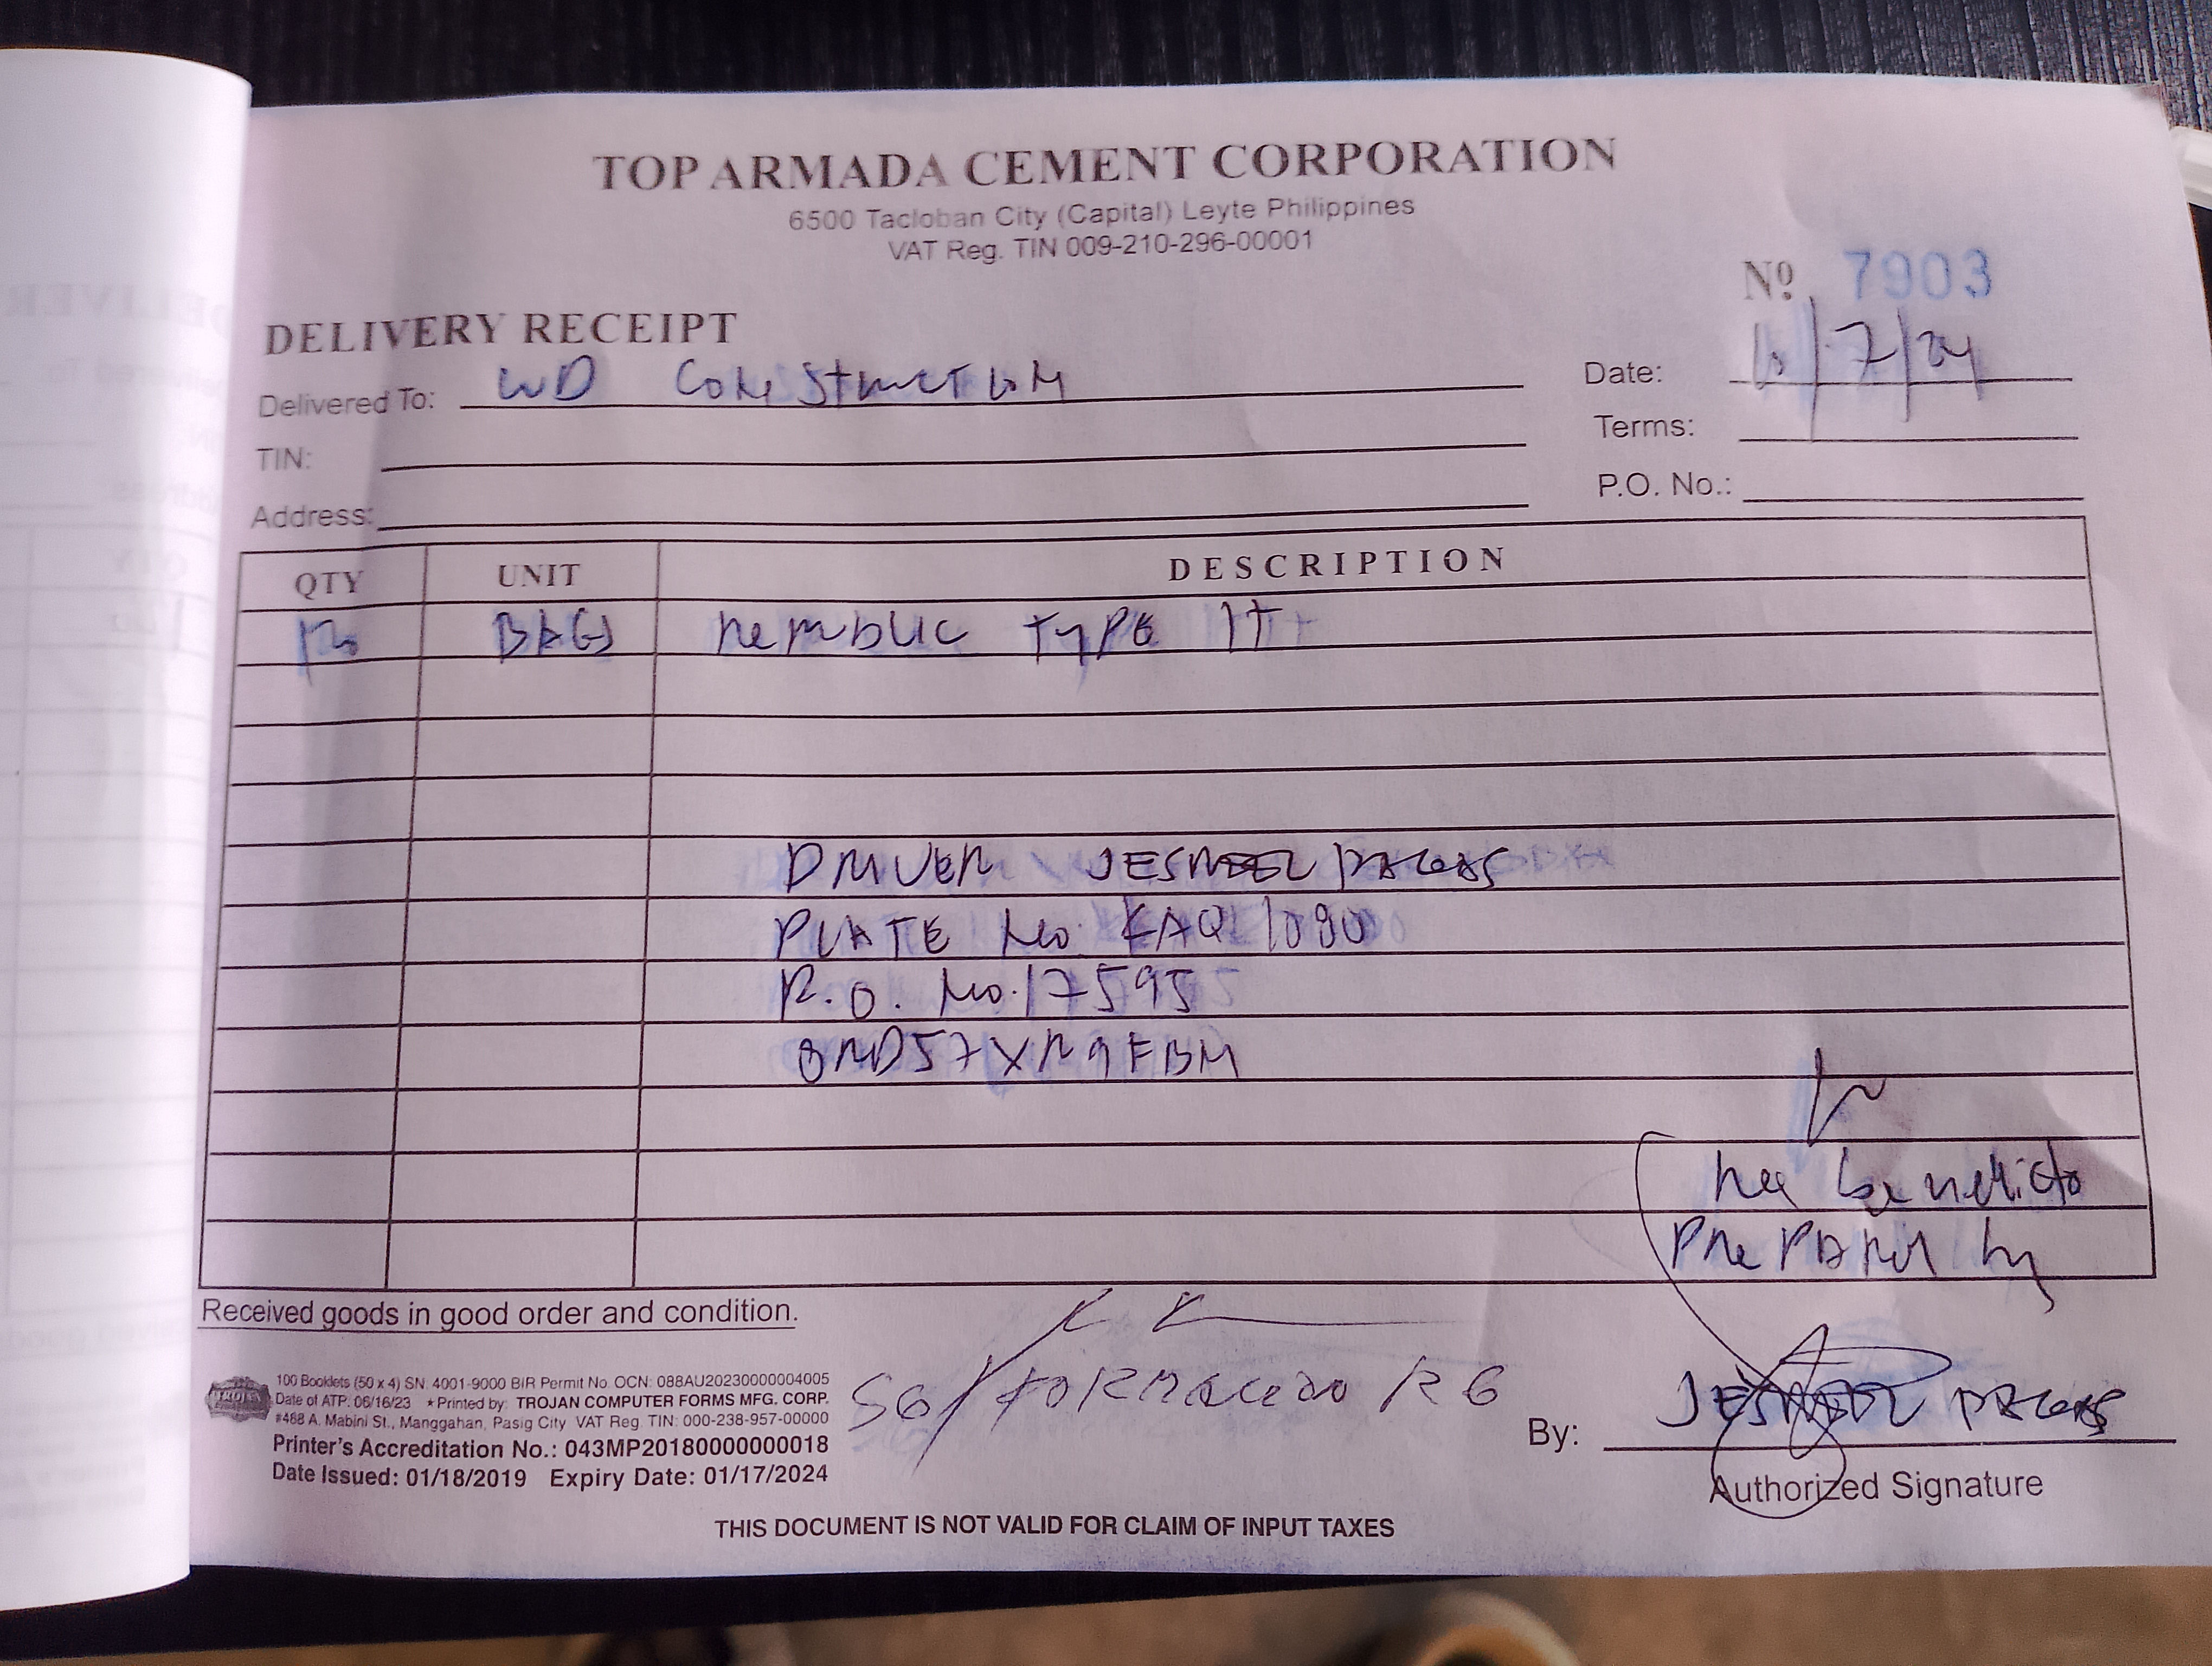 TOP ARMADA CEMENT CORPORATION
6500 Tacloban City (Capital) Leyte Philippines
VAT Reg. TIN 009-210-296-00001
Nº 7903
DELIVERY RECEIPT
Delivered To: WD CONSTRUCTION
Date: 10/7/24
TIN:
Terms:
Address:
P.O. No.:
QTY UNIT DESCRIPTION
120 BAGS REPUBLIC TYPE 1T
DRIVER
PLATE No. KAQ 1090
P.O. No. 17595
57XR9FBM
benedicto
Prepared by
Received goods in good order and condition.
100 Booklets (50 x 4) SN. 4001-9000 BIR Permit No. OCN: 088AU20230000004005
Date of ATP: 06/16/23 ★Printed by: TROJAN COMPUTER FORMS MFG. CORP.
#468 A. Mabini St., Manggahan, Pasig City VAT Reg. TIN: 000-238-957-00000
Printer's Accreditation No.: 043MP20180000000018
Date Issued: 01/18/2019 Expiry Date: 01/17/2024
SG/
By:
Authorized Signature
THIS DOCUMENT IS NOT VALID FOR CLAIM OF INPUT TAXES